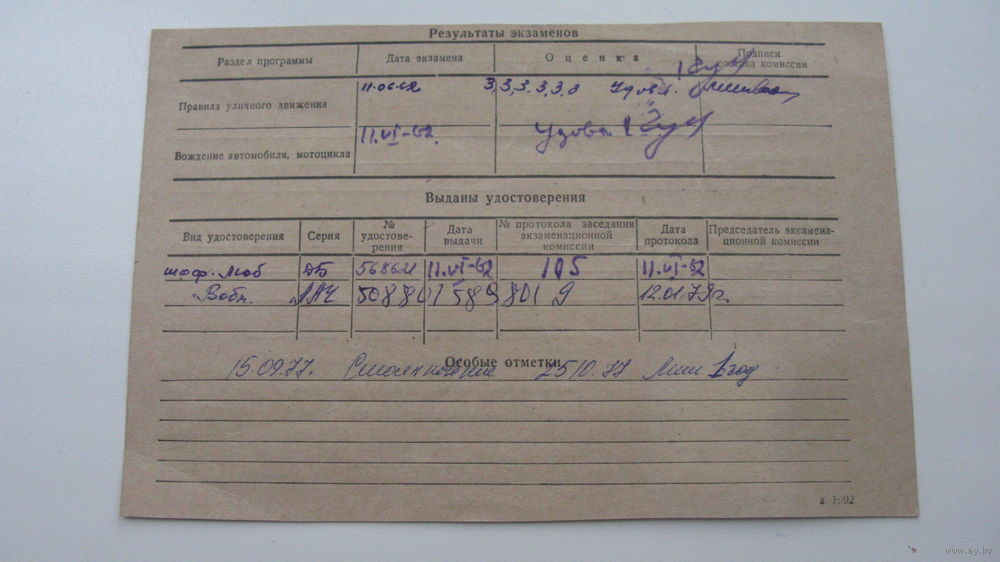 Результаты экзаменов
Раздел программы Дата экзамена Оценка Подписи состава комиссии
Правила уличного движения 11.06.62 3,3,3.3,3,3 Удовл.
Вождение автомобиля, мотоцикла 11.VI-62 Удовл.
Выданы удостоверения
Вид удостоверения Серия № удостове- рения Дата выдачи № протокола заседания экзаменационной комиссии Дата протокола Председатель экзамена- ционной комиссии
шоф. Люб АБ 568621 11.VI-62 105 11.VI-62
ААЧ 508801 12.01.79г.
Особые отметки
15.09.77. Столкновение 25.10.77 Лиш 1 год
з. 4-92
www.ay.by